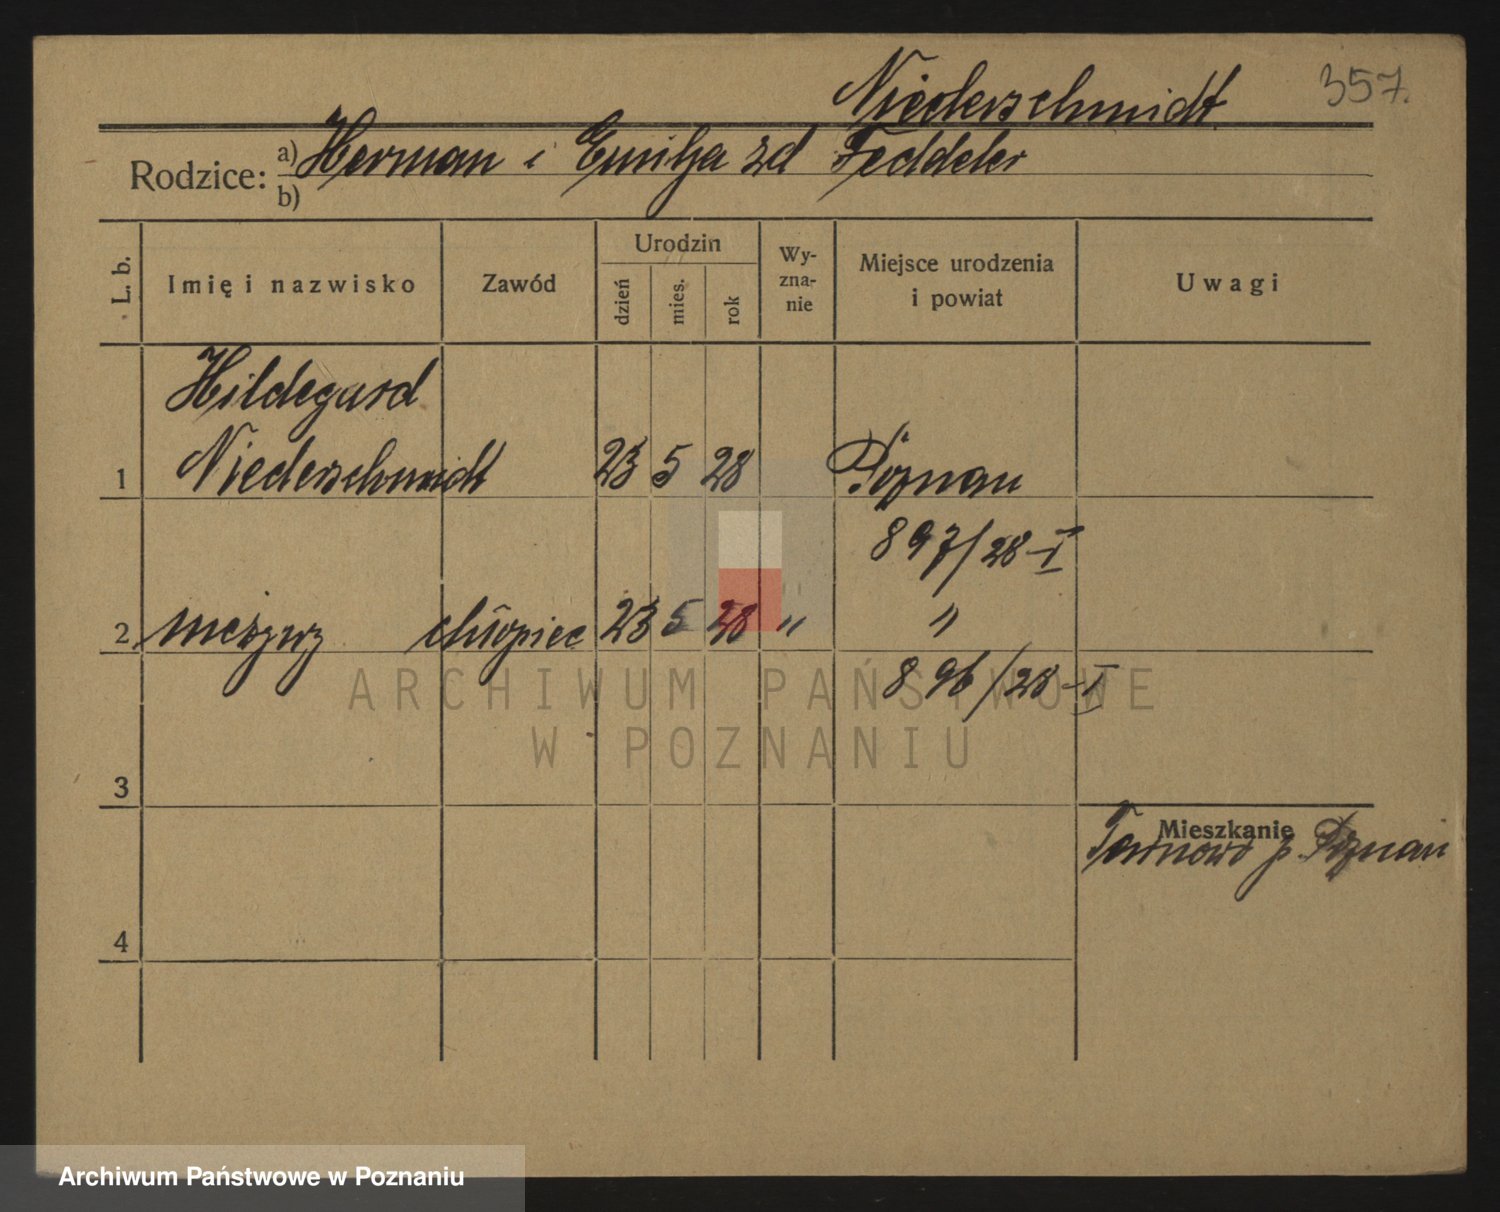 Niederschmidt
357.
Rodzice: a) Herman i Emilja zd Feddeler
b)
L. b.
Imię i nazwisko
Zawód
Urodzin
dzień
mies.
rok
Wy-
zna-
nie
Miejsce urodzenia
i powiat
Uwagi
Hildegard
1 Niederschmidt 23 5 28 Poznań
897/28-I
2 nieżywy chłopiec 23 5 28 " "
896/28-I
ARCHIWUM PAŃSTWOWE
W POZNANIU
3
Mieszkanie
Tarnowo p. Poznań
4
Archiwum Państwowe w Poznaniu